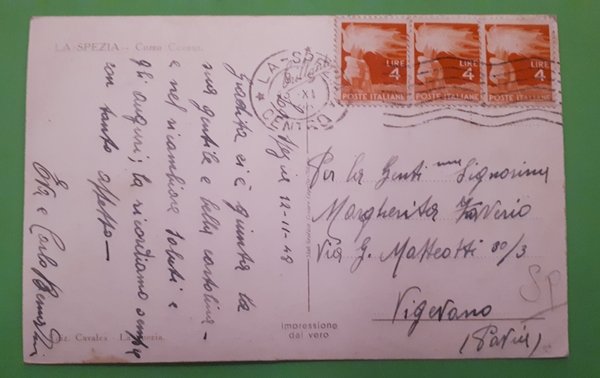 LA SPEZIA - Corso Cavour
La Spezia 12-11-48
Gradita ci è giunta la
sua gentile e bella cartolina -
e nel ricambiare saluti e
gli auguri; la ricordiamo sempre
con tanto affetto -
Eva e Carlo
LIRE 4
POSTE ITALIANE
LIRE 4
POSTE ITALIANE
LIRE 4
POSTE ITALIANE
LA SPEZIA
XI
CENTRO
Per la Gent. ma Signorina
Margherita Saverio
Via G. Matteotti 30/3
Vigevano
(Pavia)
SP
Impressione
dal vero
Cavalca - La Spezia.